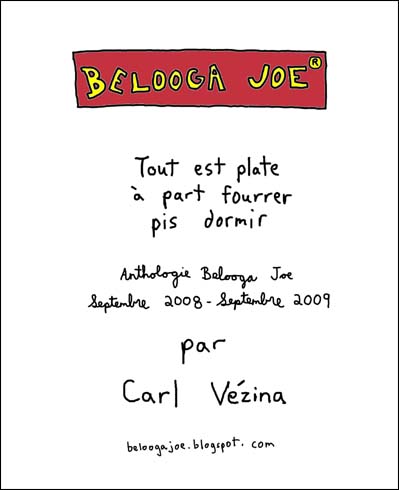 BELOOGA JOE®
Tout est plate
à part fourrer
pis dormir
Anthologie Belooga Joe
Septembre 2008 - Septembre 2009
par
Carl Vézina
beloogajoe.blogspot.com